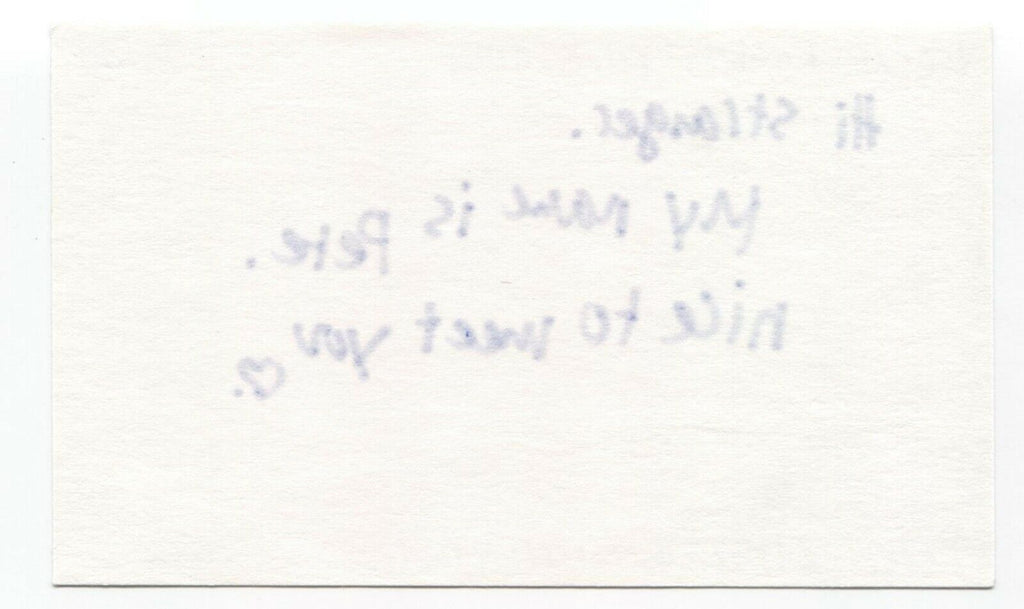 Hi stranger.
My name is Pere.
nice to meet you ♡.